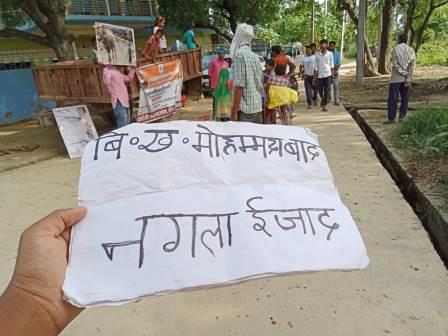 बि॰ख॰मोहम्मदाबाद
नगला ईजाद